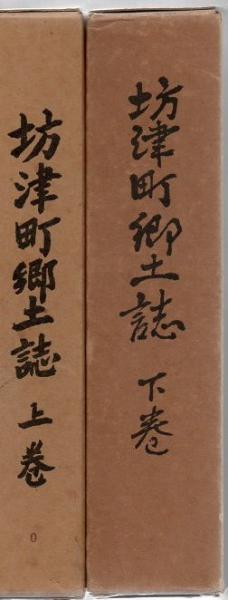 坊津町郷土誌 上巻
0
坊津町郷土誌 下巻